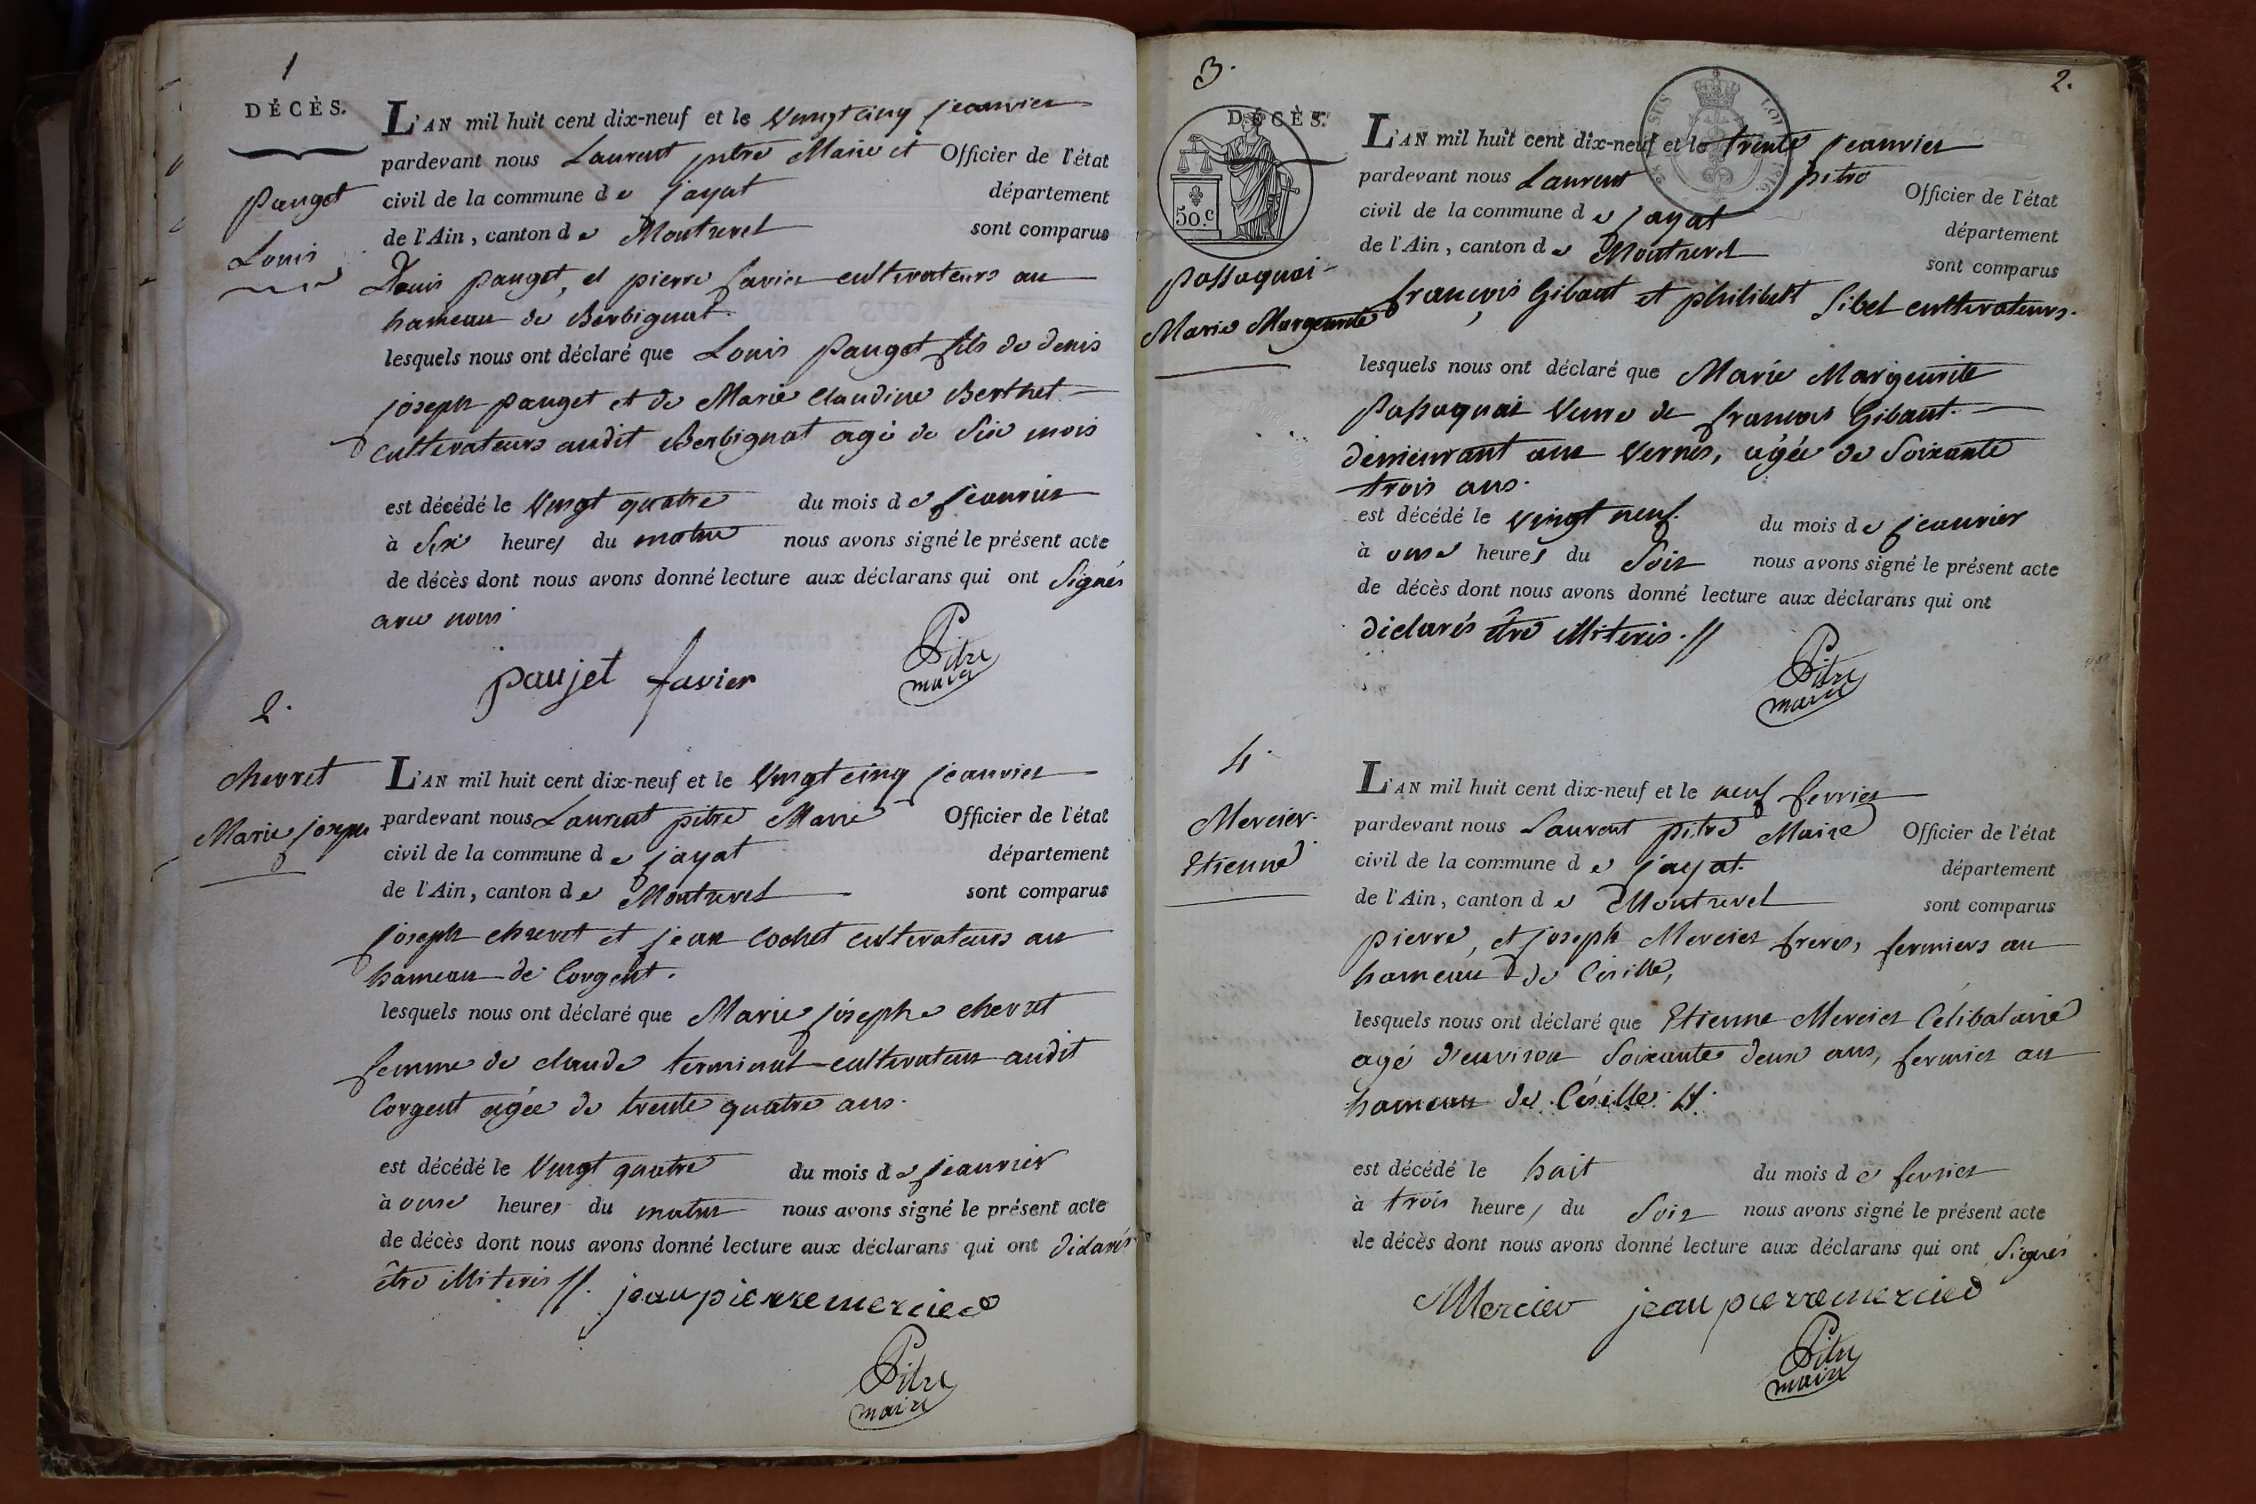 1
DÉCÈS.
Pauget
Louis
L'AN mil huit cent dix-neuf et le vingt cinq jeanvier
pardevant nous Laurent pitre Maire et Officier de l'état
civil de la commune de jayat département
de l'Ain, canton de Montrevel sont comparus
Louis pauget, et pierre favier cultivateurs au
hameau de Berbignat.
lesquels nous ont déclaré que Louis Pauget fils de denis
joseph pauget et de Marie Claudine Berthet
cultivateurs audit Berbignat agé de Six mois
est décédé le vingt quatre du mois de jeanvier
à Six heures du matin nous avons signé le présent acte
de décès dont nous avons donné lecture aux déclarans qui ont Signés
avec nous
paujet favier Pitre
maire
2.
chevret
Marie joseph
L'AN mil huit cent dix-neuf et le vingt cinq jeanvier
pardevant nous Laurent pitre Maire Officier de l'état
civil de la commune de jayat département
de l'Ain, canton de Montrevel sont comparus
joseph chevret et jean Cochet cultivateurs au
hameau de Corgent.
lesquels nous ont déclaré que Marie josephe chevret
femme de claude terminat cultivateur audit
Corgent agée de trente quatre ans.
est décédé le vingt quatre du mois de jeanvier
à onse heures du matin nous avons signé le présent acte
de décès dont nous avons donné lecture aux déclarans qui ont déclarés
être illiteris //. jean pierre mercier
Pitre
maire
3.
2.
DÉCÈS.
50.c
LOI 1816
passaquai
Marie Margeurite
L'AN mil huit cent dix-neuf et le trente jeanvier
pardevant nous Laurent pitre Officier de l'état
civil de la commune de jayat département
de l'Ain, canton de Montrevel sont comparus
françois Gibaut et philibert Sibel cultivateurs.
lesquels nous ont déclaré que Marie Margeurite
passaquai veuve de francois Gibaut.
demeurant aux Vernes, agée de Soixante
trois ans.
est décédé le vingt neuf. du mois de jeanvier
à onse heures du Soir nous avons signé le présent acte
de décès dont nous avons donné lecture aux déclarans qui ont
déclarés être illiteris. //
Pitre
maire
4.
Mercier.
Etienne
L'AN mil huit cent dix-neuf et le neuf fevrier
pardevant nous Laurent pitre Maire Officier de l'état
civil de la commune de jayat. département
de l'Ain, canton de Montrevel sont comparus
pierre, et joseph Mercier freres, fermiers au
hameau de Césille,
lesquels nous ont déclaré que Etienne Mercier Célibataire
agé d'environ Soixante deux ans, fermier au
hameau de Césille. //.
est décédé le huit du mois de fevrier
à trois heures du Soir nous avons signé le présent acte
de décès dont nous avons donné lecture aux déclarans qui ont Signés
Mercier jean pierre mercier
Pitre
maire